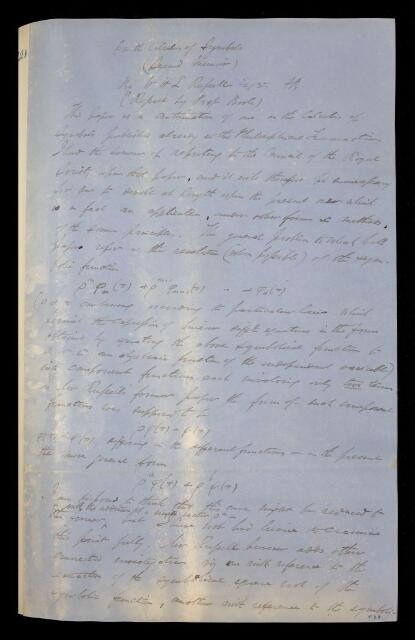 On the Calculus of Symbols
(Second Memoir)
By W H L Russell Esq
(Report by Prof Boole)
This paper is a continuation of one on the Calculus of
Symbols published already in the Philosophical Transactions
I had the honour of reporting to the Council of the Royal
Society upon that paper, and it will therefore be unnecessary
for me to dwell at length upon the present one which
is in fact an application, under other forms & methods,
of the same principles. The general problem to which both
papers refer is the resolution (when possible) of the symbo-
lic function
permit the expression of linear diff. equations in the form
obtained by equating the above symbolical function to
(an algebraic function of the independent variable)
into component functions each involving only two terms
In Mr Russell's former paper the form of such component
functions was supposed to be
differing in the different functions - in the present
the more general form
I am disposed to think that this case might be reduced to
the former, but I have not had leisure to examine
this point fully. Mr Russell however adds other
connected investigations viz one with reference to the
extraction of the symbolical square root of the
symbolic function, another with reference to the symbolic